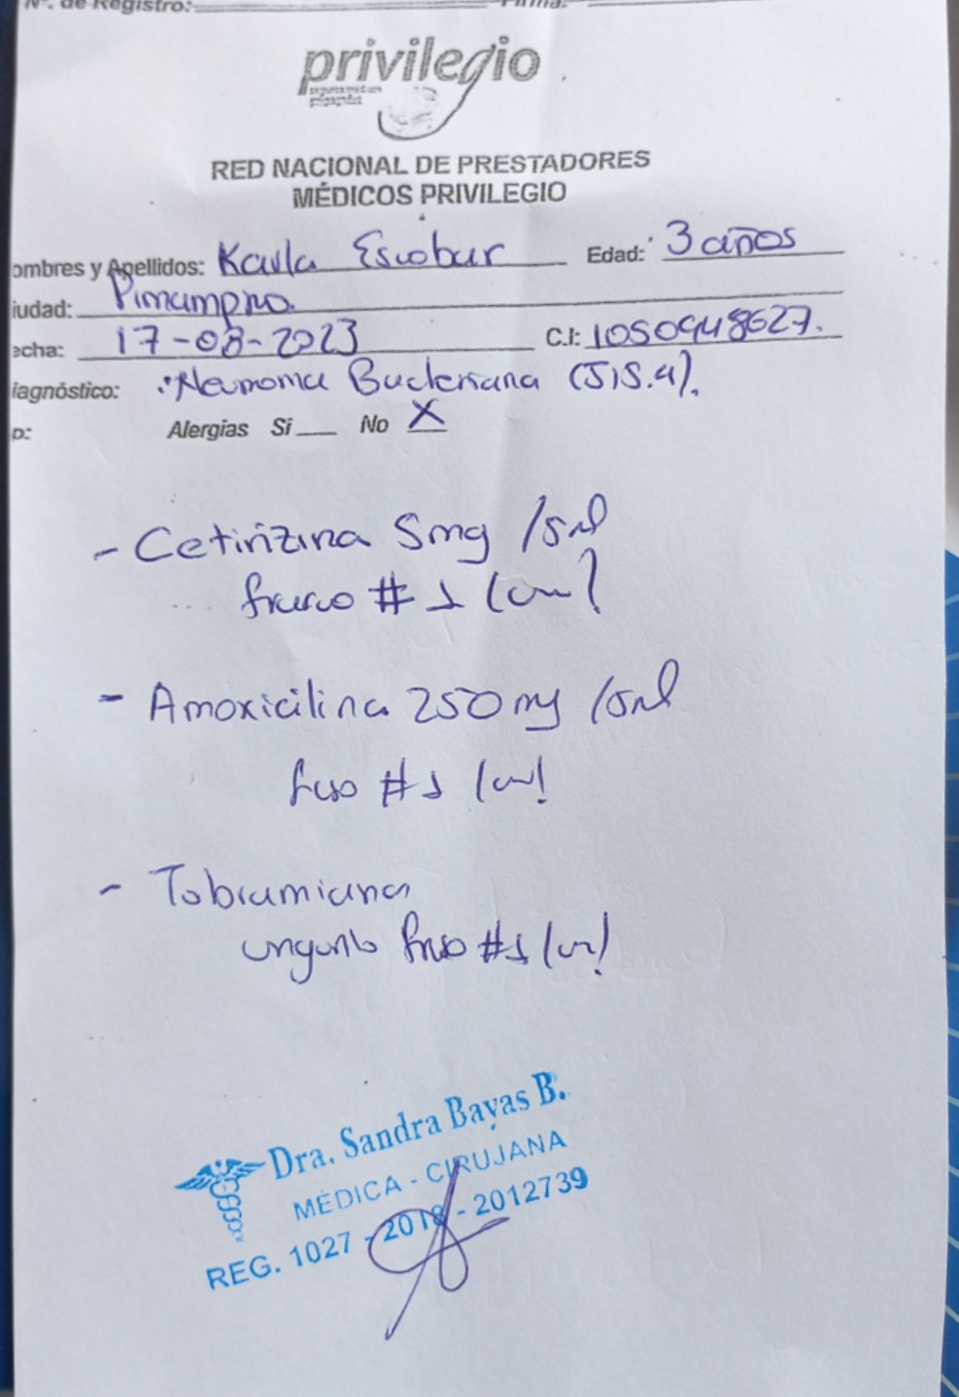 Nº. de Registro: Firma:
privilegio
RED NACIONAL DE PRESTADORES
MÉDICOS PRIVILEGIO
ombres y Apellidos: Karla Escobar Edad: 3 años
iudad: Pimampiro.
echa: 17-08-2023 C.I: 1050948627.
iagnóstico: Neumonia Bacteriana (J15.9).
o: Alergias Si No X
- Cetirizina 5mg /5ml
frasco # 1 (un)
- Amoxicilina 250 mg /5ml
fco # 1 (un)
- Tobramicina
unguento fco # 1 (un)
Dra. Sandra Bayas B.
MÉDICA - CIRUJANA
REG. 1027 - 2018 - 2012739